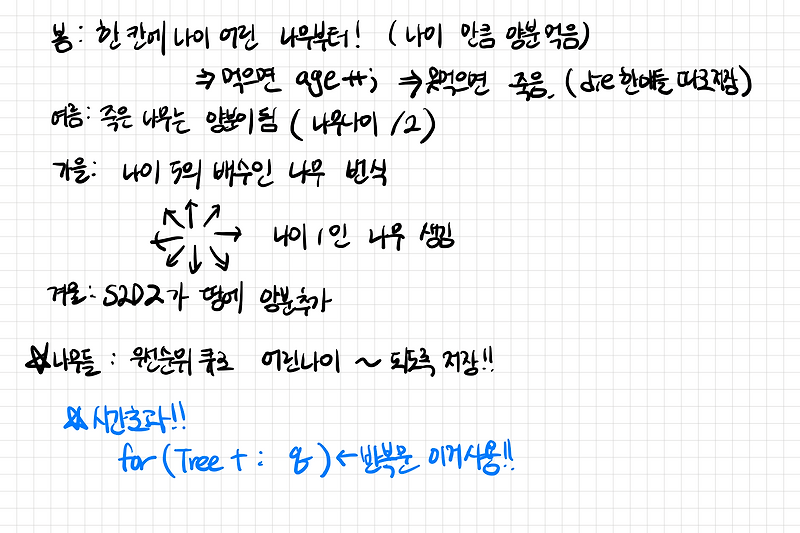 봄 : 한 칸에 나이 어린 나무부터! (나이 만큼 양분 먹음)
⇒ 먹으면 age++; ⇒ 못먹으면 죽음. (die 한애들 따로저장)
여름 : 죽은 나무는 양분이 됨 (나무나이 /2)
가을 : 나이 5의 배수인 나무 번식
나이 1인 나무 생김
겨울 : S2D2가 땅에 양분추가
☆나무들 : 우선순위 큐로 어린나이 ~ 되도록 저장!!
☆시간초과!!
for (Tree t : q) ← 반복문 이거사용!!